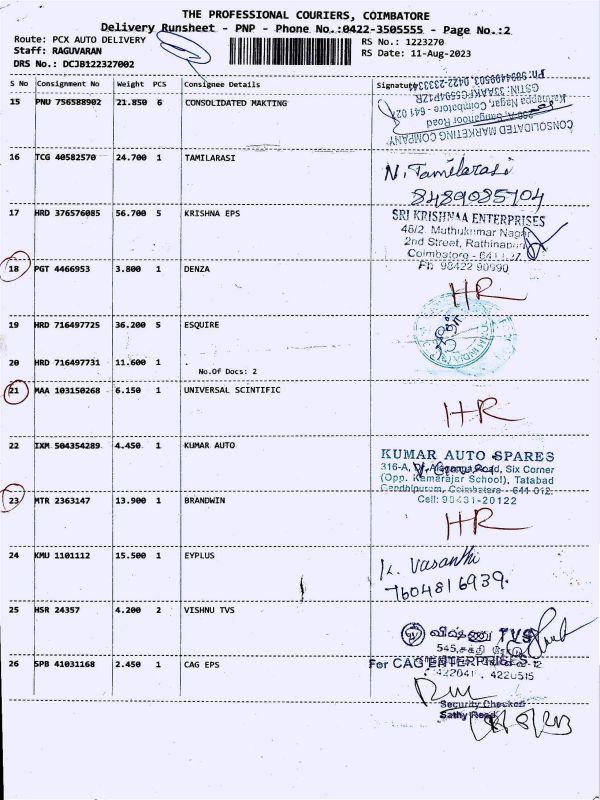 THE PROFESSIONAL COURIERS, COIMBATORE
Delivery Runsheet - PNP - Phone No.:0422-3505555 - Page No.:2
Route: PCX AUTO DELIVERY
RS No.: 1223270
Staff: RAGUVARAN
RS Date: 11-Aug-2023
DRS No.: DCJB122327002
S No Consignment No Weight PCS Consignee Details Signature
15 PNU 756588902 21.850 6 CONSOLIDATED MAKTING
CONSOLIDATED MARKETING COMPANY
Sanganoor Road
Kannappa Nagar, Coimbatore - 641 027
16 TCG 40582570 24.700 1 TAMILARASI
N. Tamilarasi
8489085704
17 HRD 376576085 56.700 5 KRISHNA EPS
SRI KRISHNAA ENTERPRISES
46/2, Muthukumar Nagar
2nd Street, Rathinapuri
Coimbatore -
Ph: 98422 90990
18 PGT 4466953 3.800 1 DENZA
HR
19 HRD 716497725 36.200 5 ESQUIRE
20 HRD 716497731 11.600 1
No.Of Docs: 2
21 MAA 103150268 6.150 1 UNIVERSAL SCINTIFIC
HR
22 IXM 504354289 4.450 1 KUMAR AUTO
KUMAR AUTO SPARES
316-A, Road, Six Corner
(Opp. Kamarajar School), Tatabad
Gandhipuram, Coimbatore - 641 012.
Cell: 98431-20122
23 MTR 2363147 13.900 1 BRANDWIN
HR
24 KMU 1101112 15.500 1 EYPLUS
K. Vasanthi
7604816939.
25 HSR 24357 4.200 2 VISHNU TVS
விஷ்ணு TVS
545,சக்தி
26 SPB 41031168 2.450 1 CAG EPS
For CAG ENTERPRISES
422041 . 4220515
Security Checked
Sathy Road